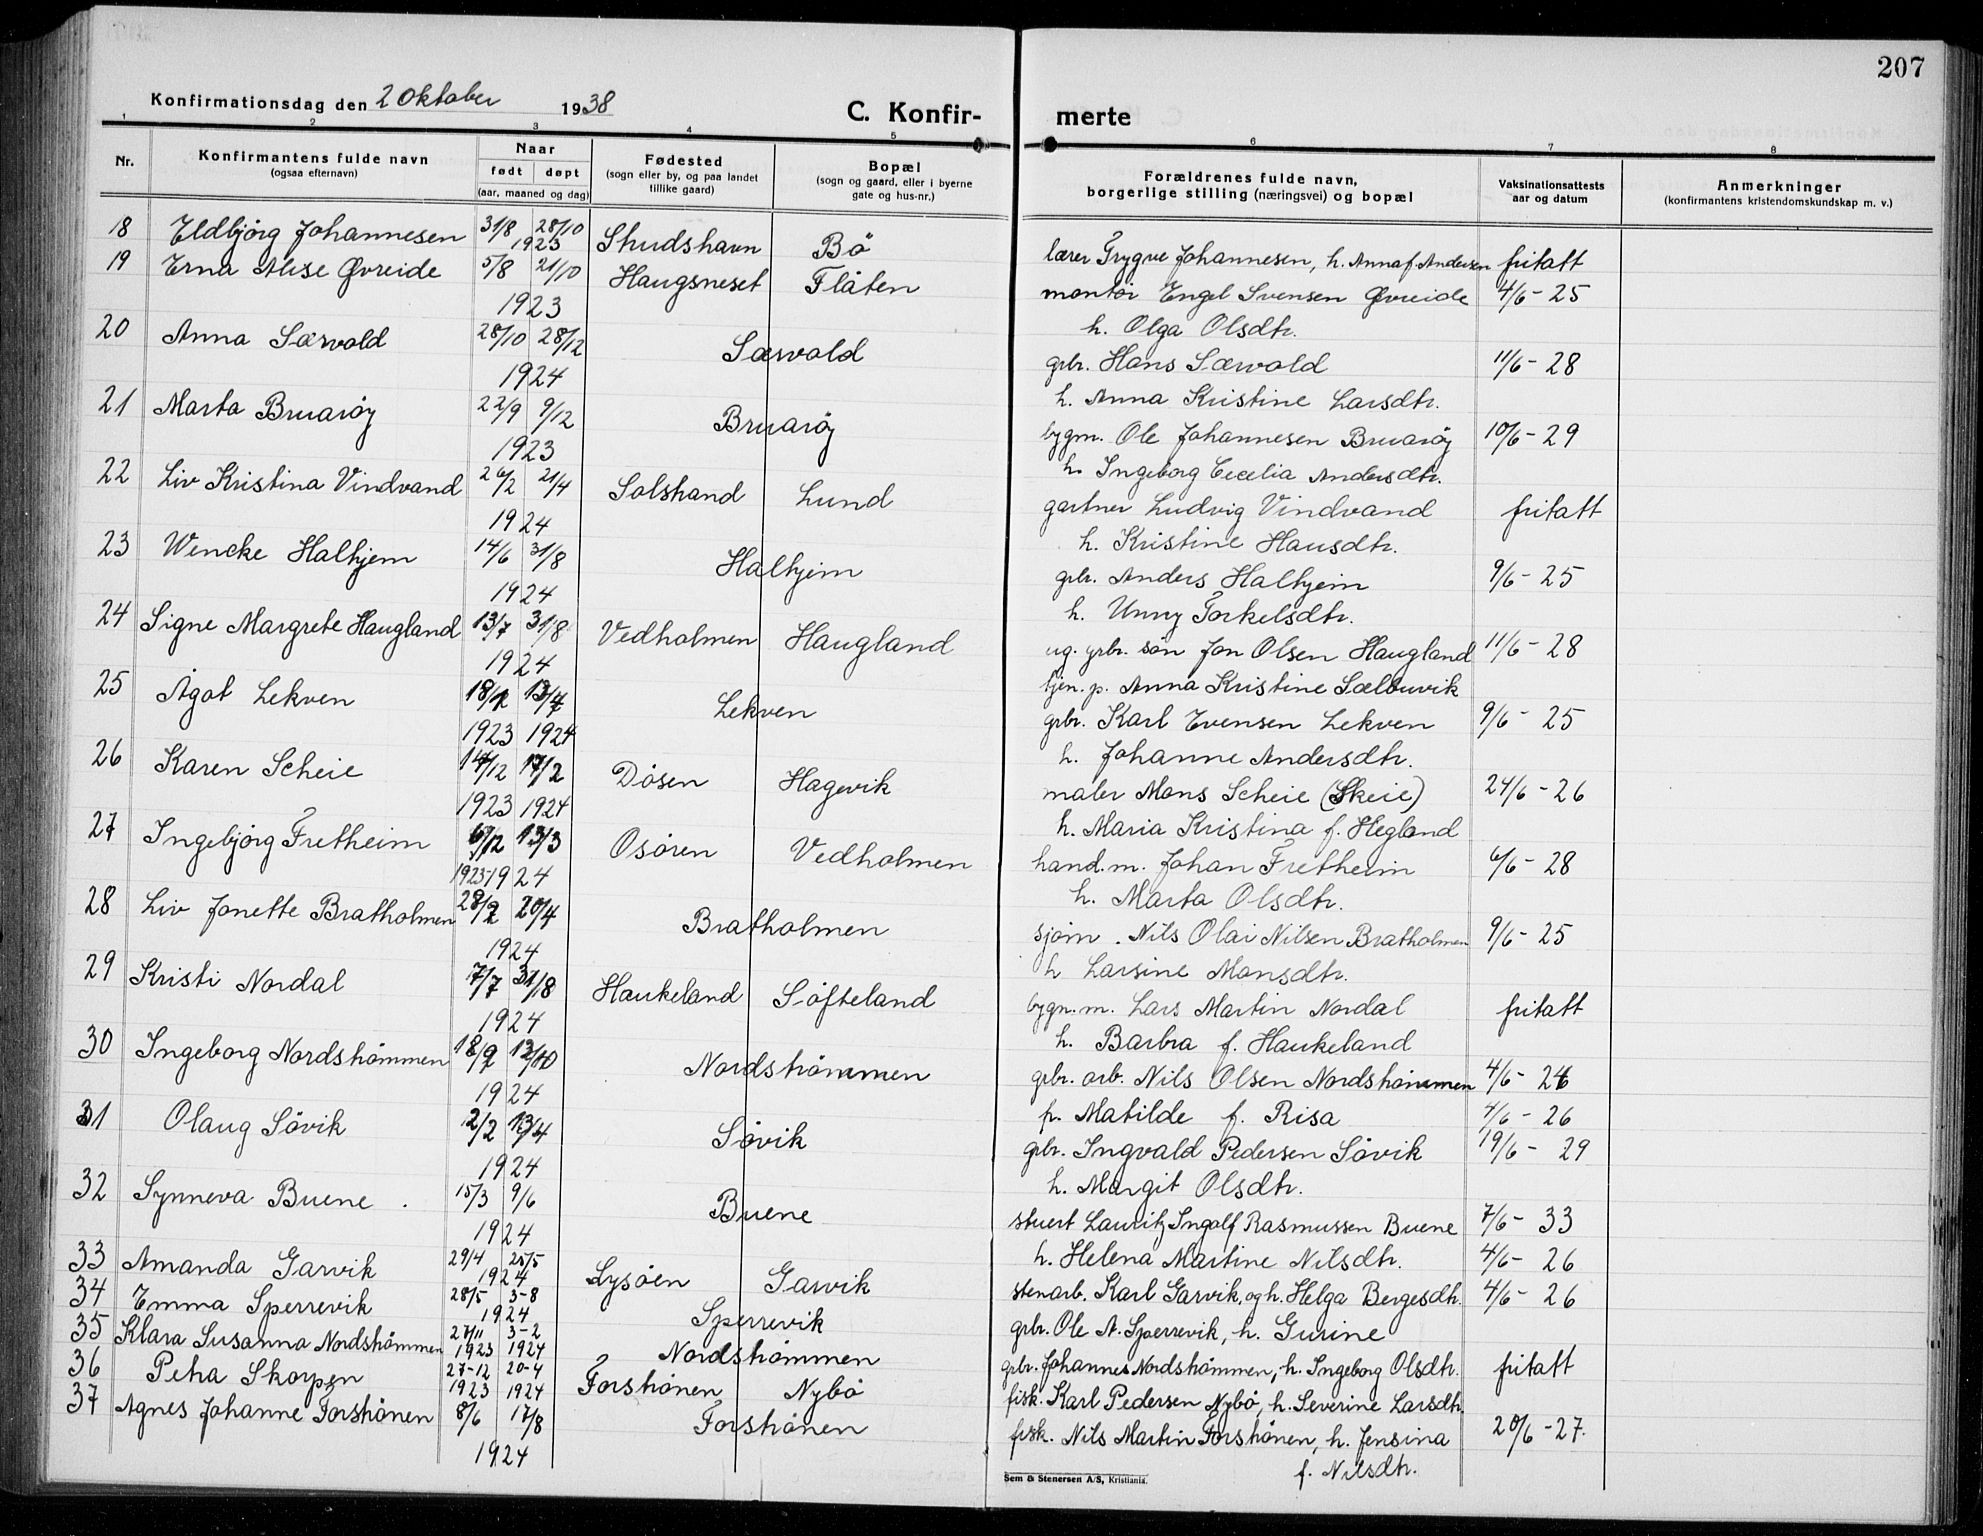 207
Konfirmationsdag den 2 Oktober 1938
C. Konfir- merte
1 2 3 4 5 6 7 8
Nr. Konfirmantens fulde navn (ogsaa efternavn) Naar født døpt (aar, maaned og dag) Fødested (sogn eller by, og paa landet tillike gaard) Bopæl (sogn og gaard, eller i byerne gate og hus-nr.) Forældrenes fulde navn, borgerlige stilling (næringsvei) og bopæl Vaksinationsattests aar og datum Anmerkninger (konfirmantens kristendomskundskap m. v.)
18 Eldbjørg Johannesen 31/8 28/10 1923 Skudshavn Bö lærer Trygve Johannesen, h. Anna f. Andersen fritatt
19 Erna Alise Øvreide 5/8 21/10 1923 Haugsneset Flåten montör Engel Svensen Øvreide 4/6 - 25
h. Olga Olsdtr.
20 Anna Særvold 28/10 28/12 1924 Særvold grbr. Hans Særvold 11/6 - 28
h. Anna Kristine Larsdtr.
21 Marta Bruarøy 22/9 9/12 1923 Bruarøy bygm. Ole Johannesen Bruarøy 10/6 - 29
h. Ingeborg Cecelia Andersdtr.
22 Liv Kristina Vindvand 26/2 21/4 1924 Solstrand Lund gartner Ludvig Vindvand fritatt
h. Kristine Hansdtr.
23 Wencke Halhjem 14/6 31/8 1924 Halhjem grbr. Anders Halhjem 9/6 - 25
h. Unny Torkelsdtr.
24 Signe Margrete Haugland 13/7 31/8 1924 Vedholmen Haugland ug. grbr. sön Jon Olsen Haugland 11/6 - 28
tjen. p. Anna Kristine Sælbuvik
25 Ågot Lekven 18/12 13/4 1923 1924 Lekven grbr. Karl Evensen Lekven 9/6 - 25
h. Johanne Andersdtr.
26 Karen Scheie 14/12 17/2 1923 1924 Dösen Hagevik maler Mons Scheie (Skeie) 24/6 - 26
h. Maria Kristina f. Hegland
27 Ingebjørg Fretheim 6/12 13/3 1923 1924 Osören Vedholmen hand.m. Johan Fretheim 6/6 - 28
h. Marta Olsdtr.
28 Liv Jonette Bratholmen 28/2 20/4 1924 Bratholmen sjöm. Nils Olai Nilsen Bratholmen 9/6 - 25
h. Larsine Monsdtr.
29 Kristi Nordal 7/7 31/8 1924 Haukeland Söfteland bygn.m. Lars Martin Nordal fritatt
h. Barbra f. Haukeland
30 Ingeborg Nordströmmen 18/9 12/10 1924 Nordströmmen grbr. arb. Nils Olsen Nordströmmen 4/6 - 26
h. Matilde f. Risa 4/6 - 26
31 Olaug Sövik 2/2 13/4 1924 Sövik grbr. Ingvald Pedersen Sövik 19/6 - 29
h. Margit Olsdtr.
32 Synneva Buene 15/3 9/6 1924 Buene stuert Lauritz Ingolf Rasmussen Buene 7/6 - 33
h. Helena Martine Nilsdtr. 4/6 - 26
33 Amanda Garvik 29/4 25/5 1924 Lysöen Garvik stenarb. Karl Garvik, og h. Helga Bergesdtr. 4/6 - 26
34 Emma Sperrevik 28/5 3-8 1924 Sperrevik grbr. Ole A. Sperrevik, h. Gurine
35 Klara Susanna Nordströmmen 27/11 3-2 1923 1924 Nordströmmen grbr. Johannes Nordströmmen, h. Ingeborg Olsdtr. fritatt
36 Petra Skorpen 27-12 20-4 1923 1924 Forströnen Nybö fisk. Karl Pedersen Nybö, h. Severine Larsdtr.
37 Agnes Johanne Forströnen 8/6 17/8 1924 Forströnen fisk. Nils Martin Forströnen, h. Jensina 20/6 - 27.
f. Nilsdtr.
Sem & Stenersen A/S, Kristiania.